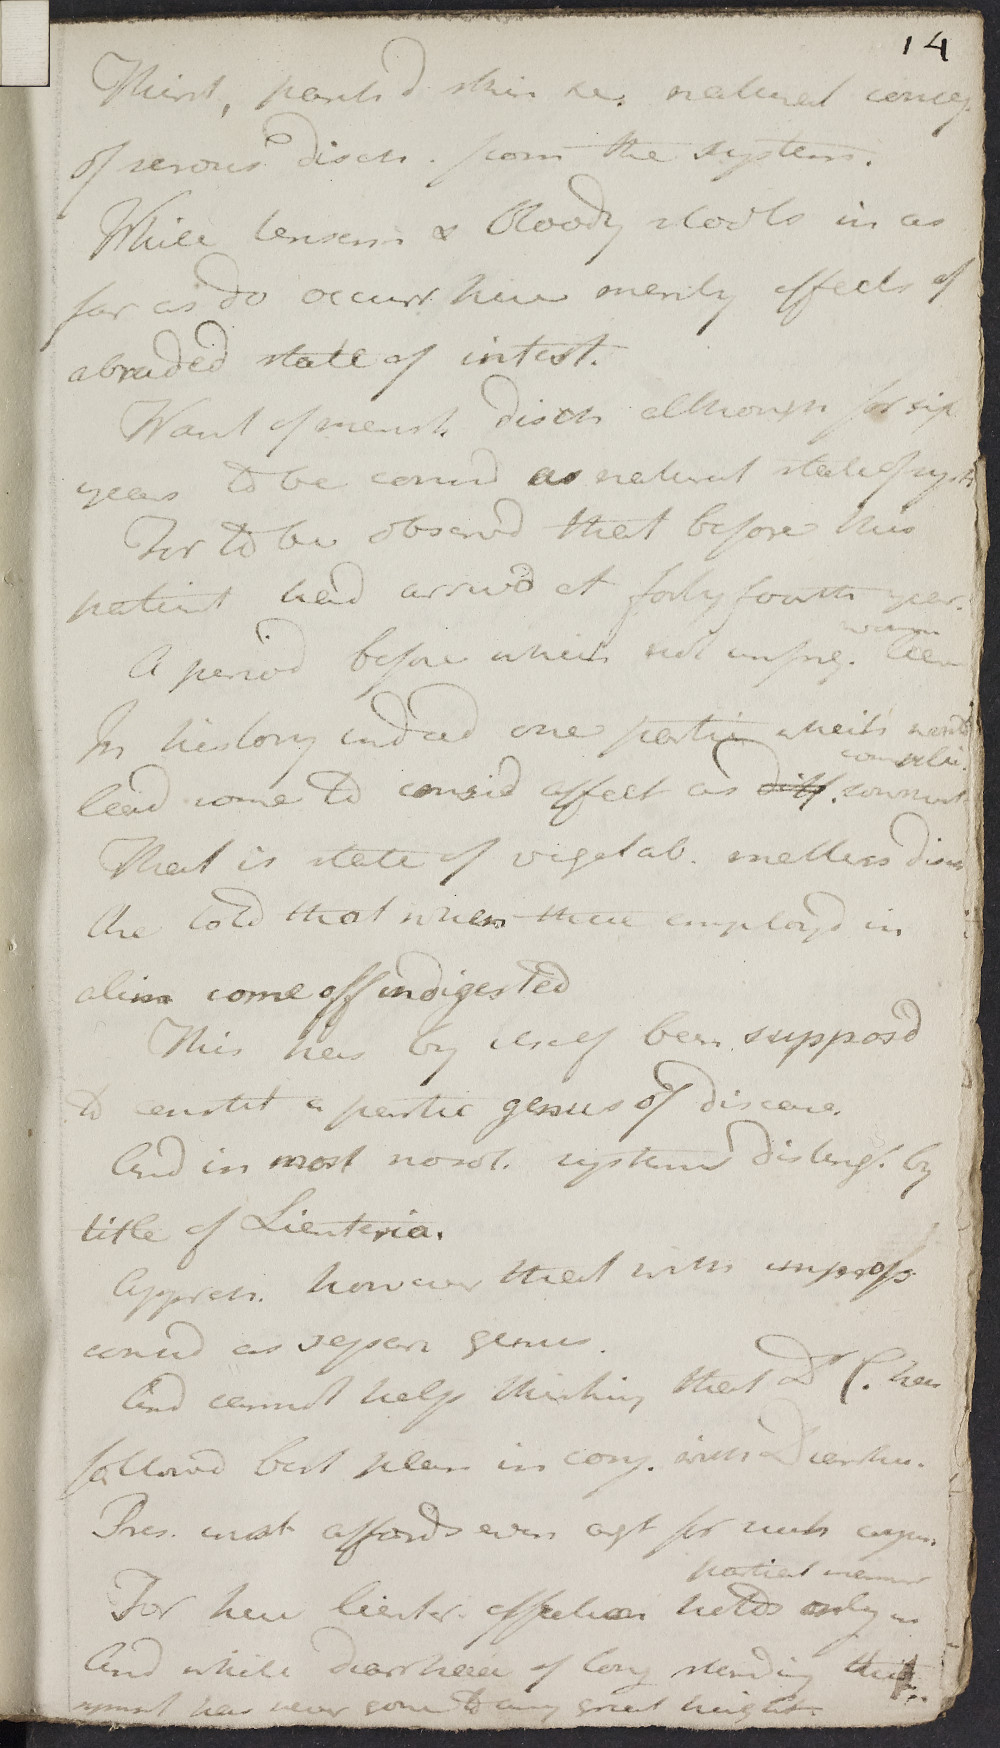 14
Thirst, parch'd skin &c. natural conseq.
of serous disch. from the system.
While tenesm & Bloody stools in as
far as do occurr here merely effects of
abraded state of intest.
Want of menst. disch although for six
years to be consid as natural state of syst.
For to be observd that before this
patient had arriv'd at forty fourth year.
A period before which not unfreq. women
In history indeed one partic which might
lead some to consid affect as diff. complic. somewhat
That is state of vegetab. matters disch
Are told that when these employd in
alim come off indigested
This has by itself been supposd
to constit a partic genus of disease.
And in most nosol. systems disting. by
title of Lienteria.
Appreh. however that with improp.
consid as separ genus.
And cannot help thinking that Dr C. has
followd best plan in conj. with Diarrhe.
Pres. inst. affords even agt for such
partial manner
For here lienter. affection holds only in
And while diarrhaea of long standing this
sympt has never gone to any great height.